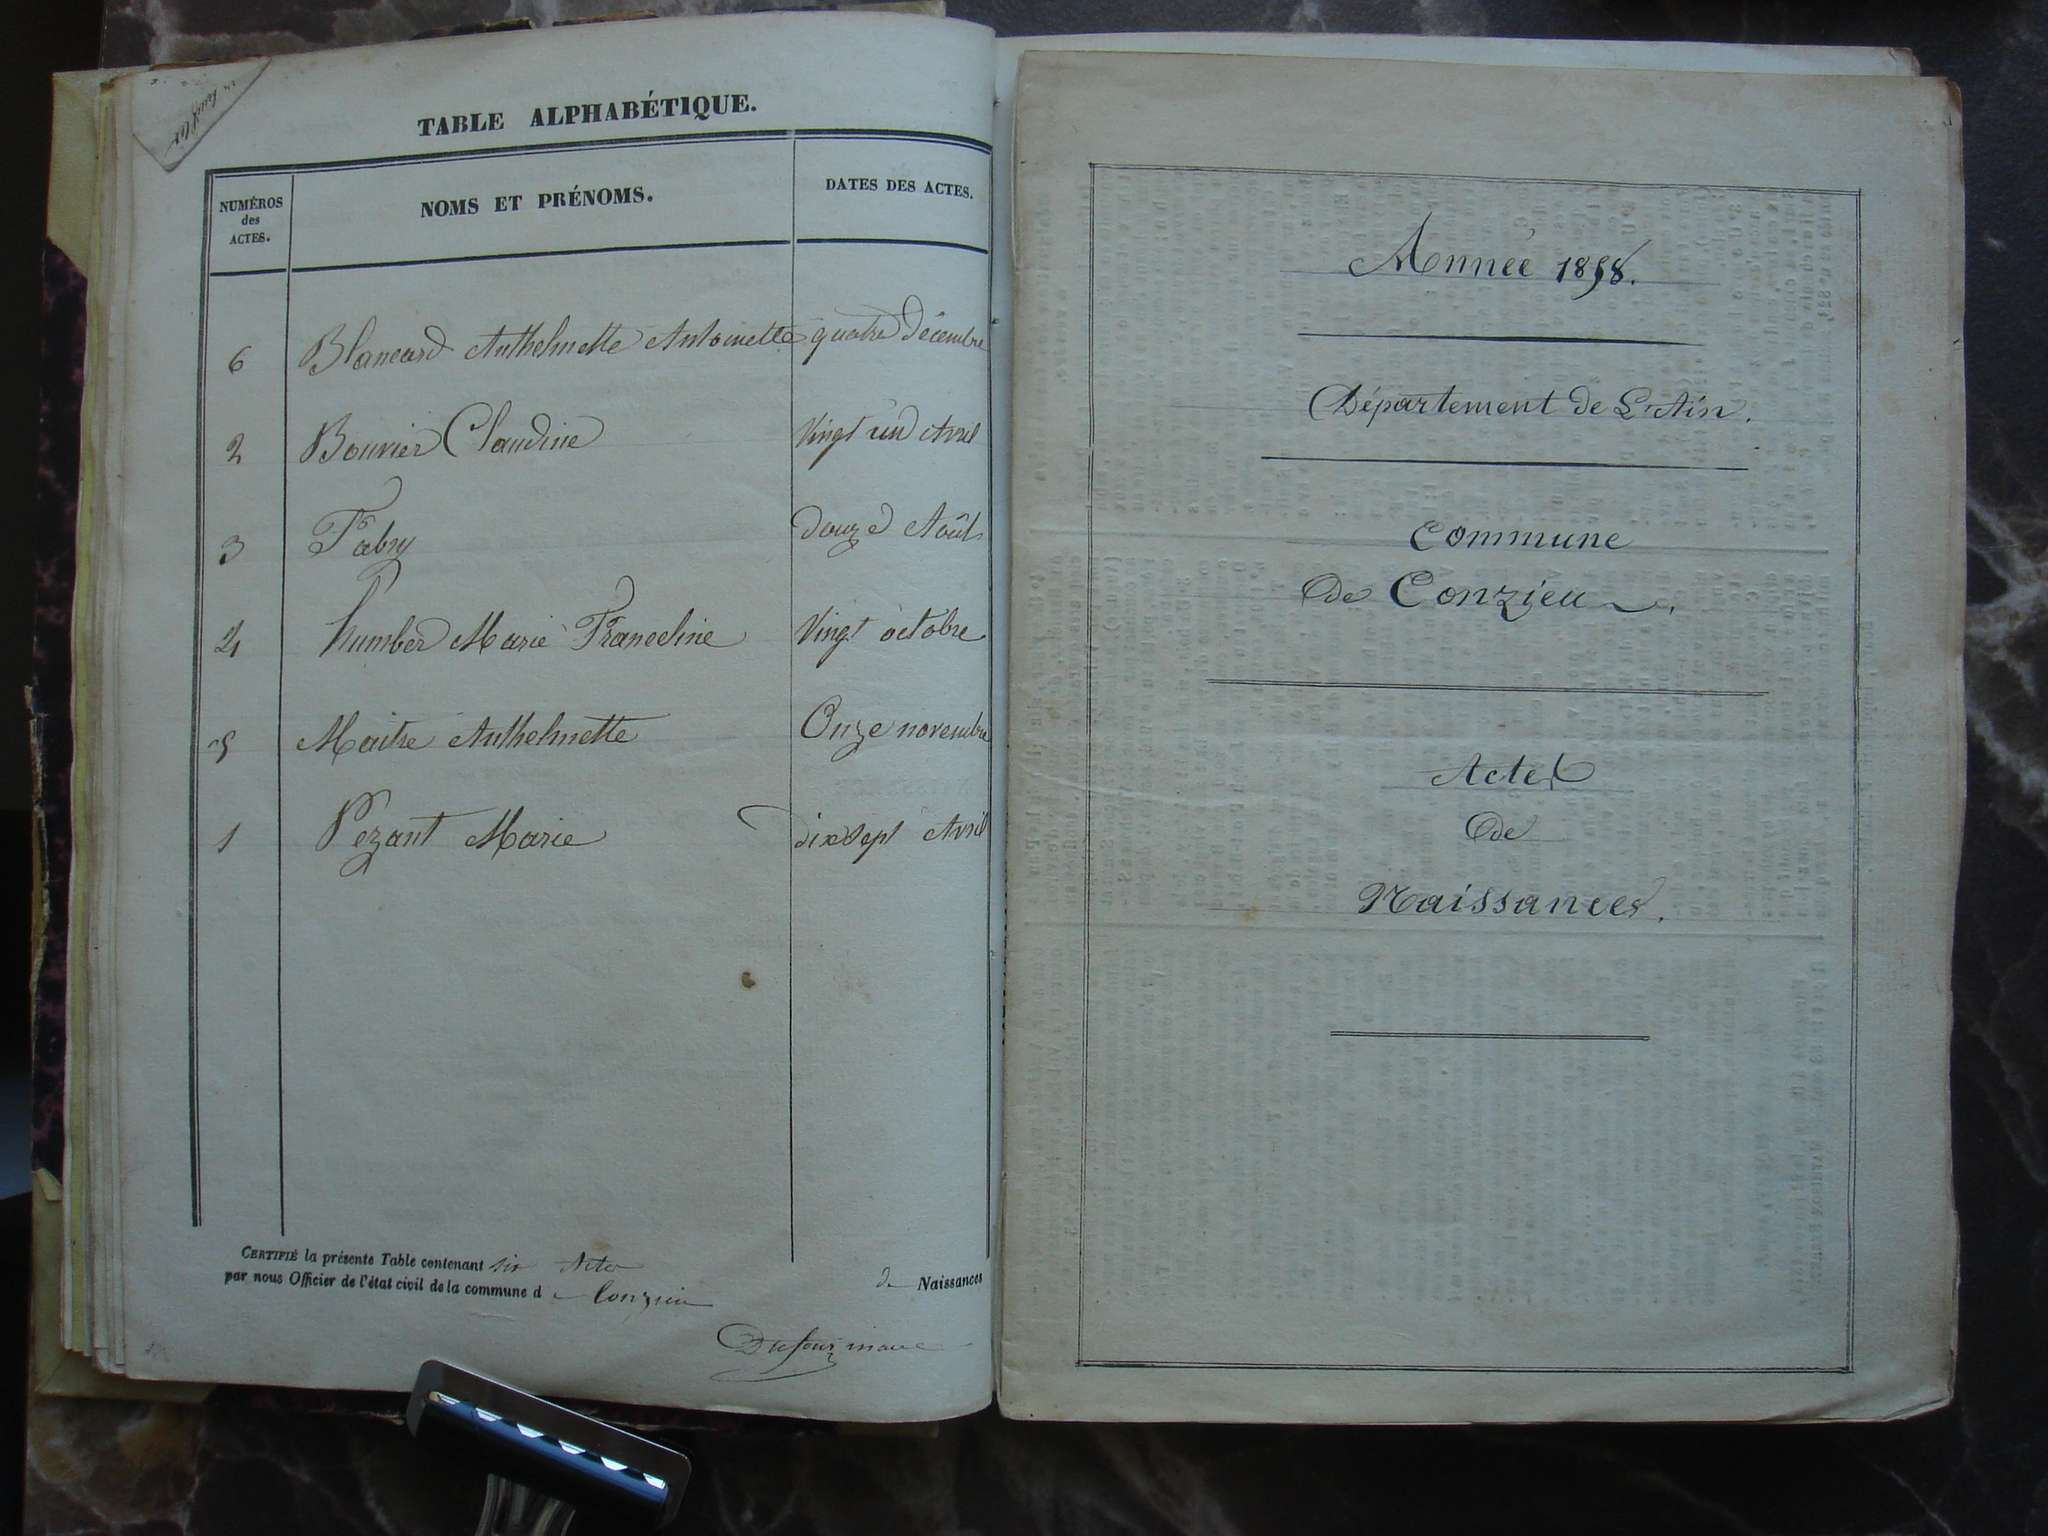 TABLE ALPHABÉTIQUE.
NUMÉROS
des
ACTES.
NOMS ET PRÉNOMS.
DATES DES ACTES.
6 Blancard Anthelmette Antoinette quatre Décembre
2 Bouvier Claudine Vingt un Avril
3 Fabry Douze Août
4 humber Marie Franceline Vingt octobre
5 Maitre Anthelmette Onze novembre
1 Pezant Marie Dix Sept Avril
CERTIFIÉ la présente Table contenant six Actes de Naissances
par nous Officier de l'état civil de la commune de Conzieu
Dufour maire
Année 1858.
Département de L'Ain.
Commune
de Conzieu
Actes
de
Naissances.